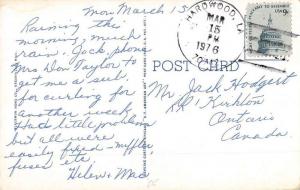 Mon March 15
Raining this
morning, much
rain. Jack, phone
Mrs Don Taylor to
get me a sub.
for curling for
another week.
Had little problems
but all were
easily fixed - muffler
fuses etc.
Helen & Mac
HARDWOOD, LA
MAR
15
PM
1976
POST CARD
Mr. Jack Hodgert
R1 Kirkton
Ontario
Canada.